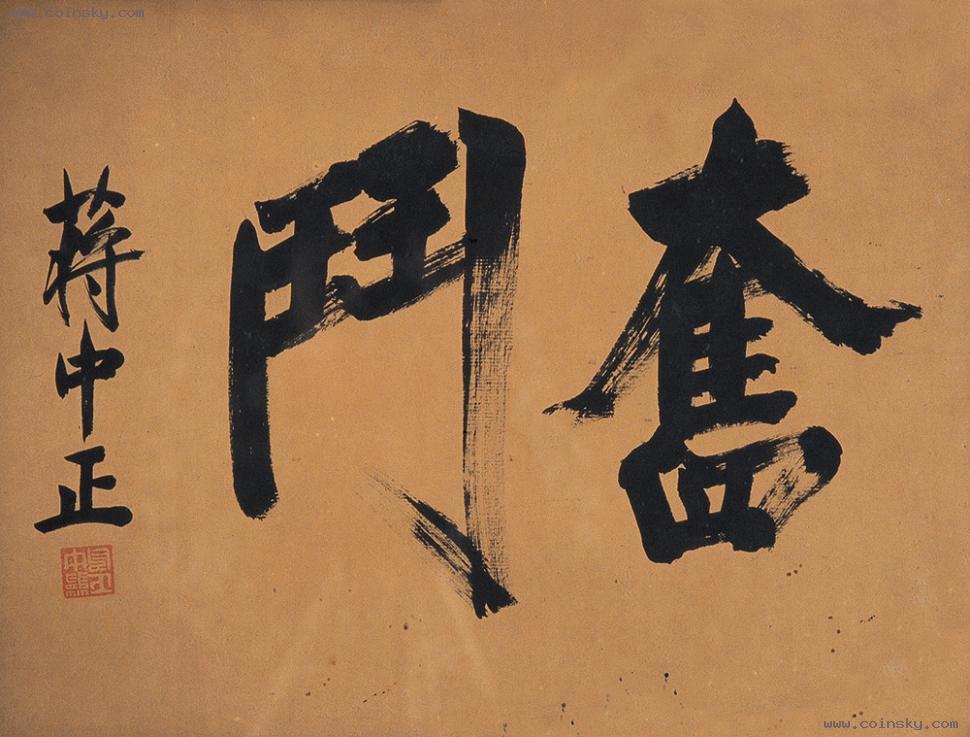 www.coinsky.com
奮鬥
蔣中正
www.coinsky.com